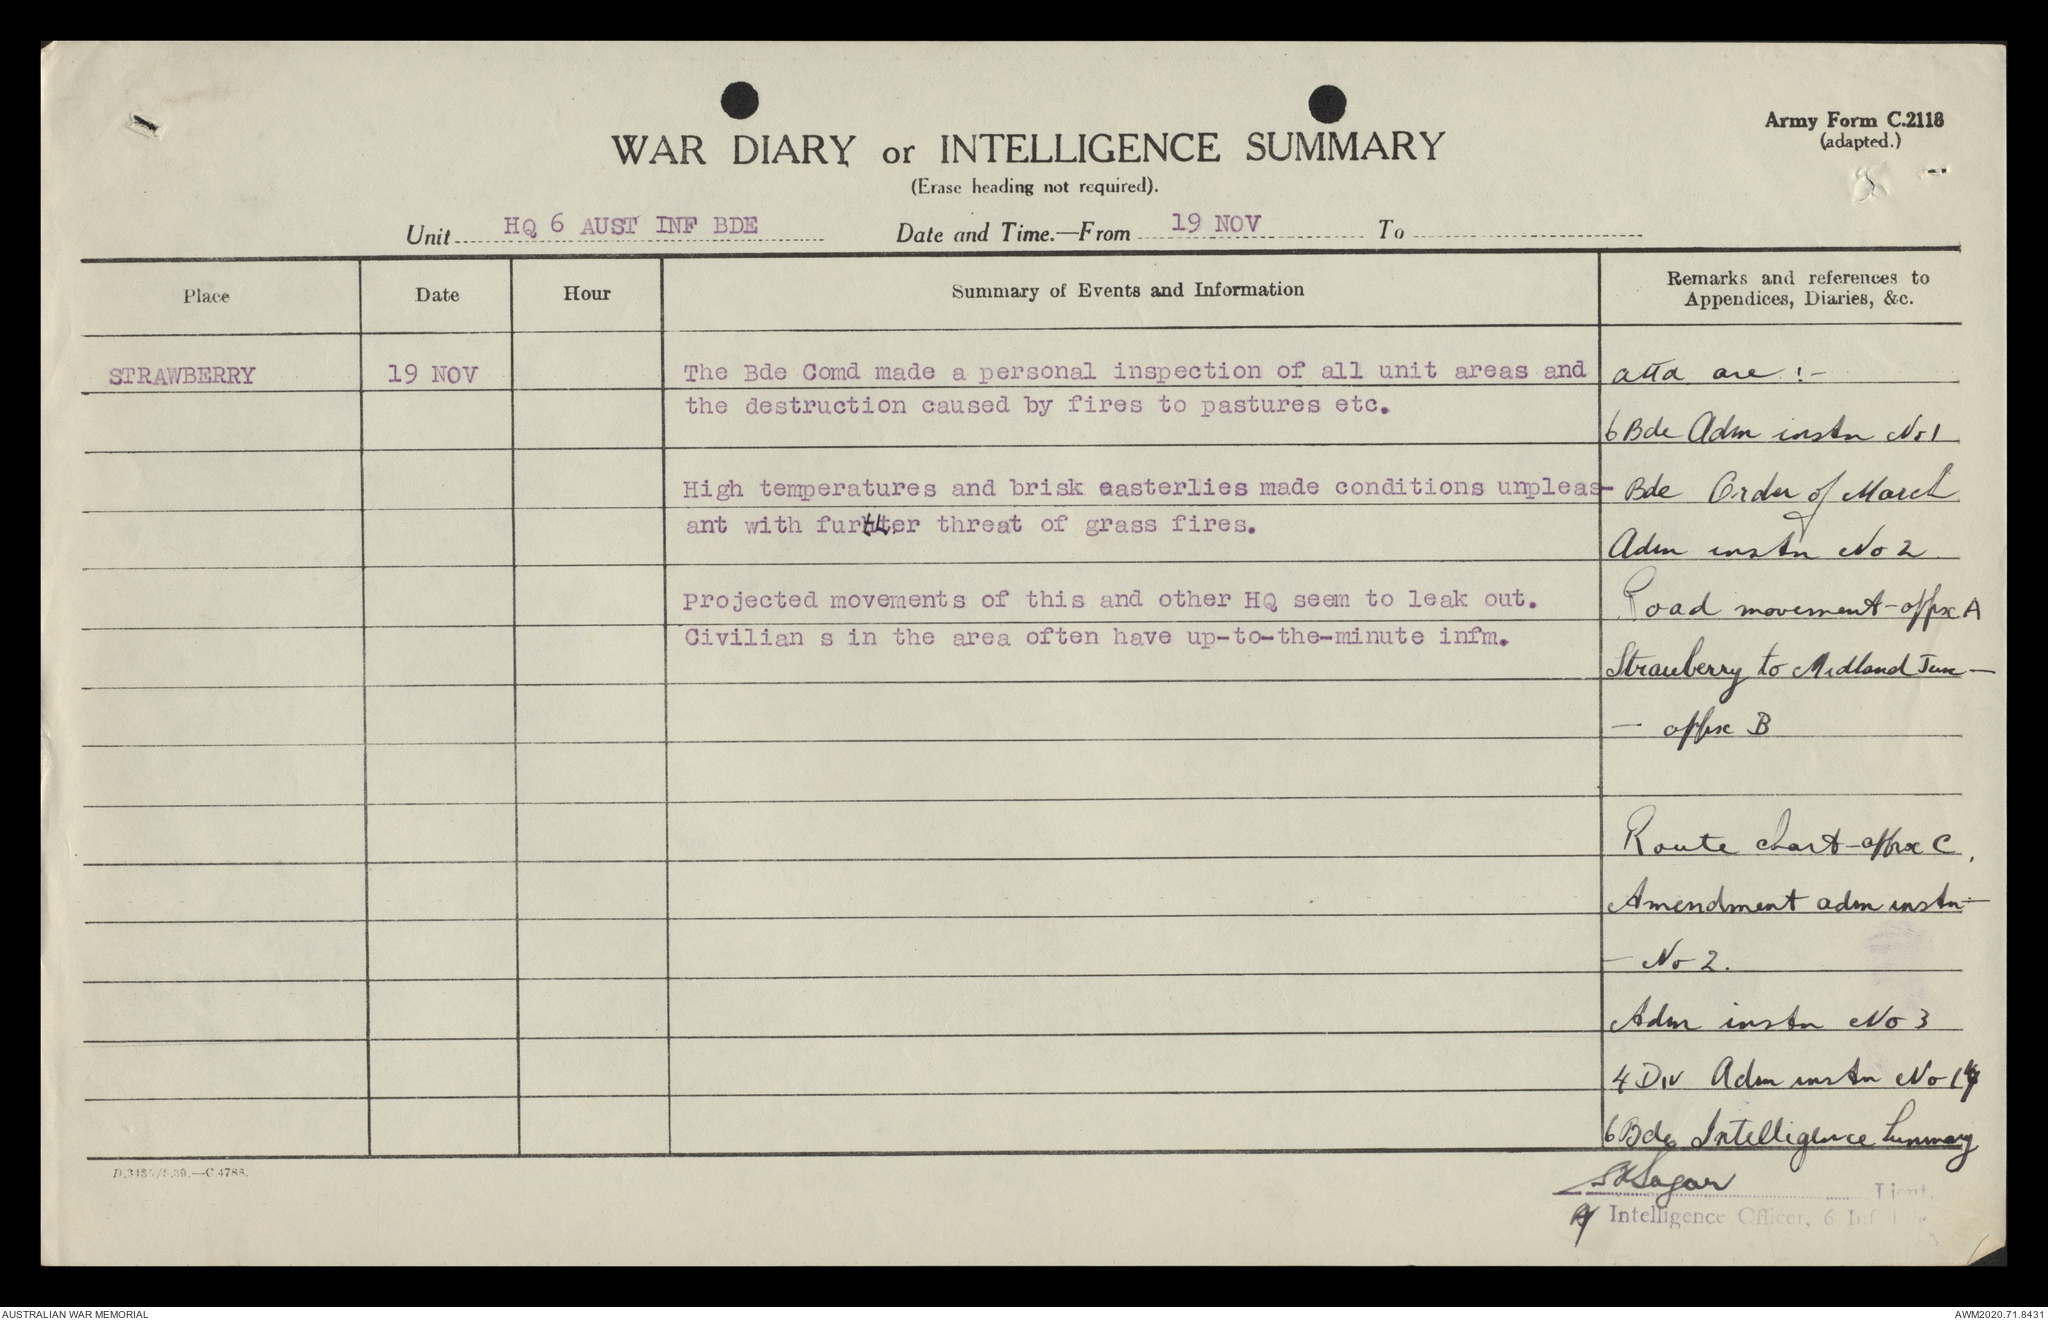 Army Form C.2118
(adapted.)
WAR DIARY or INTELLIGENCE SUMMARY
(Erase heading not required).
Unit HQ 6 AUST INF BDE Date and Time.—From 19 NOV To
Place Date Hour Summary of Events and Information Remarks and references to
Appendices, Diaries, &c.
STRAWBERRY 19 NOV The Bde Comd made a personal inspection of all unit areas and
the destruction caused by fires to pastures etc.
High temperatures and brisk easterlies made conditions unpleas-
ant with further threat of grass fires.
Projected movements of this and other HQ seem to leak out.
Civilian s in the area often have up-to-the-minute infm.
attd are :-
6 Bde Adm instn No 1
Bde Order of March
Adm instn No 2
Road movement - appx A
Strawberry to Midland Junc -
- appx B
Route chart - appx C.
Amendment adm instn -
- No 2.
Adm instn No 3
4 Div Adm instn No
6 Bde Intelligence Summary
Sagar
Lieut.
Intelligence Officer, 6 Inf
AUSTRALIAN WAR MEMORIAL
AWM2020.71.8431